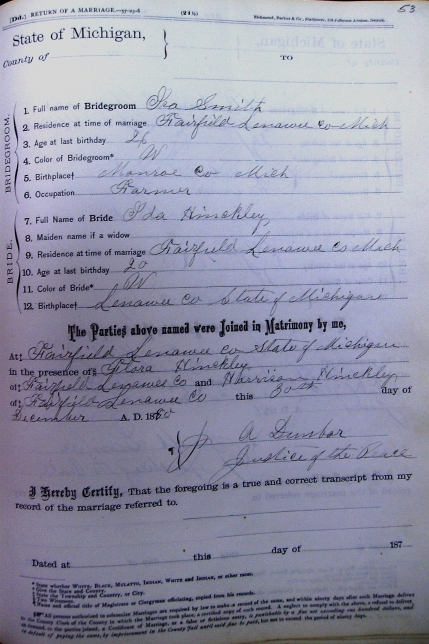 [Dd.] RETURN OF A MARRIAGE.
(21½)
53
State of Michigan,
County of
TO
BRIDEGROOM.
1. Full name of Bridegroom Ira Smith
2. Residence at time of marriage Fairfield Lenawee Co Mich
3. Age at last birthday
4. Color of Bridegroom* W
5. Birthplace† Monroe Co Mich
6. Occupation Farmer
BRIDE.
7. Full Name of Bride Ida Hinckley
8. Maiden name if a widow
9. Residence at time of marriage Fairfield Lenawee Co Mich
10. Age at last birthday 20
11. Color of Bride* W
12. Birthplace† Lenawee Co State of Michigan
The Parties above named were Joined in Matrimony by me,
At‡ Fairfield Lenawee Co State of Michigan
in the presence of§ Flora Hinckley
of‡ Fairfield Lenawee Co and Harrison Hinckley
of‡ Fairfield Lenawee Co this 30th day of
December A. D. 1880
A Dunbar
Justice of the Peace
I Hereby Certify, That the foregoing is a true and correct transcript from my
record of the marriage referred to.
Dated at this day of 187
* State whether WHITE, BLACK, MULATTO, INDIAN, WHITE and INDIAN, or other races.
† Give the State and County.
‡ State the Township and County, or City.